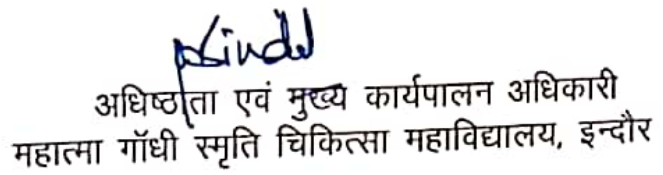 अधिष्ठाता एवं मुख्य कार्यपालन अधिकारी
महात्मा गॉधी स्मृति चिकित्सा महाविद्यालय, इन्दौर